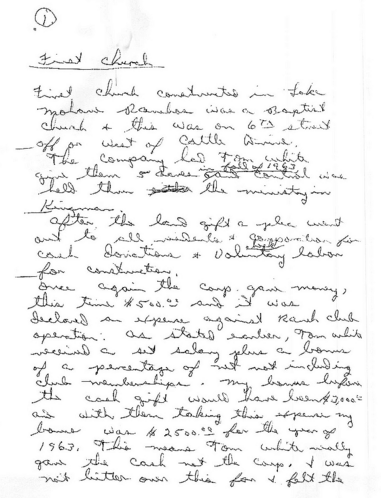 ①
First Church
First church constructed in Lake
Mohave Ranchos was a Baptist
Church & this was on 6th street
off or west of Cattle Drive.
The Company had Tom White
give them 5 acres fall of 1963 control was
held thru the ministry in
Kingman.
After the land gift a plea went
out to all residents & corporation for
cash donations & voluntary labor
for construction.
Once again the corp. gave money,
this time $500.00 and it was
declared an expense against Ranch Club
operation. As stated earlier, Tom White
received a set salary plus a bonus
of a percentage of net not including
club memberships. My bonus before
the cash gift would have been $3,000.00
with them taking this expense my
bonus was $2500.00 for the year of
1963. This means Tom White really
gave the cash not the corp. I was
not bitter over this for I felt the